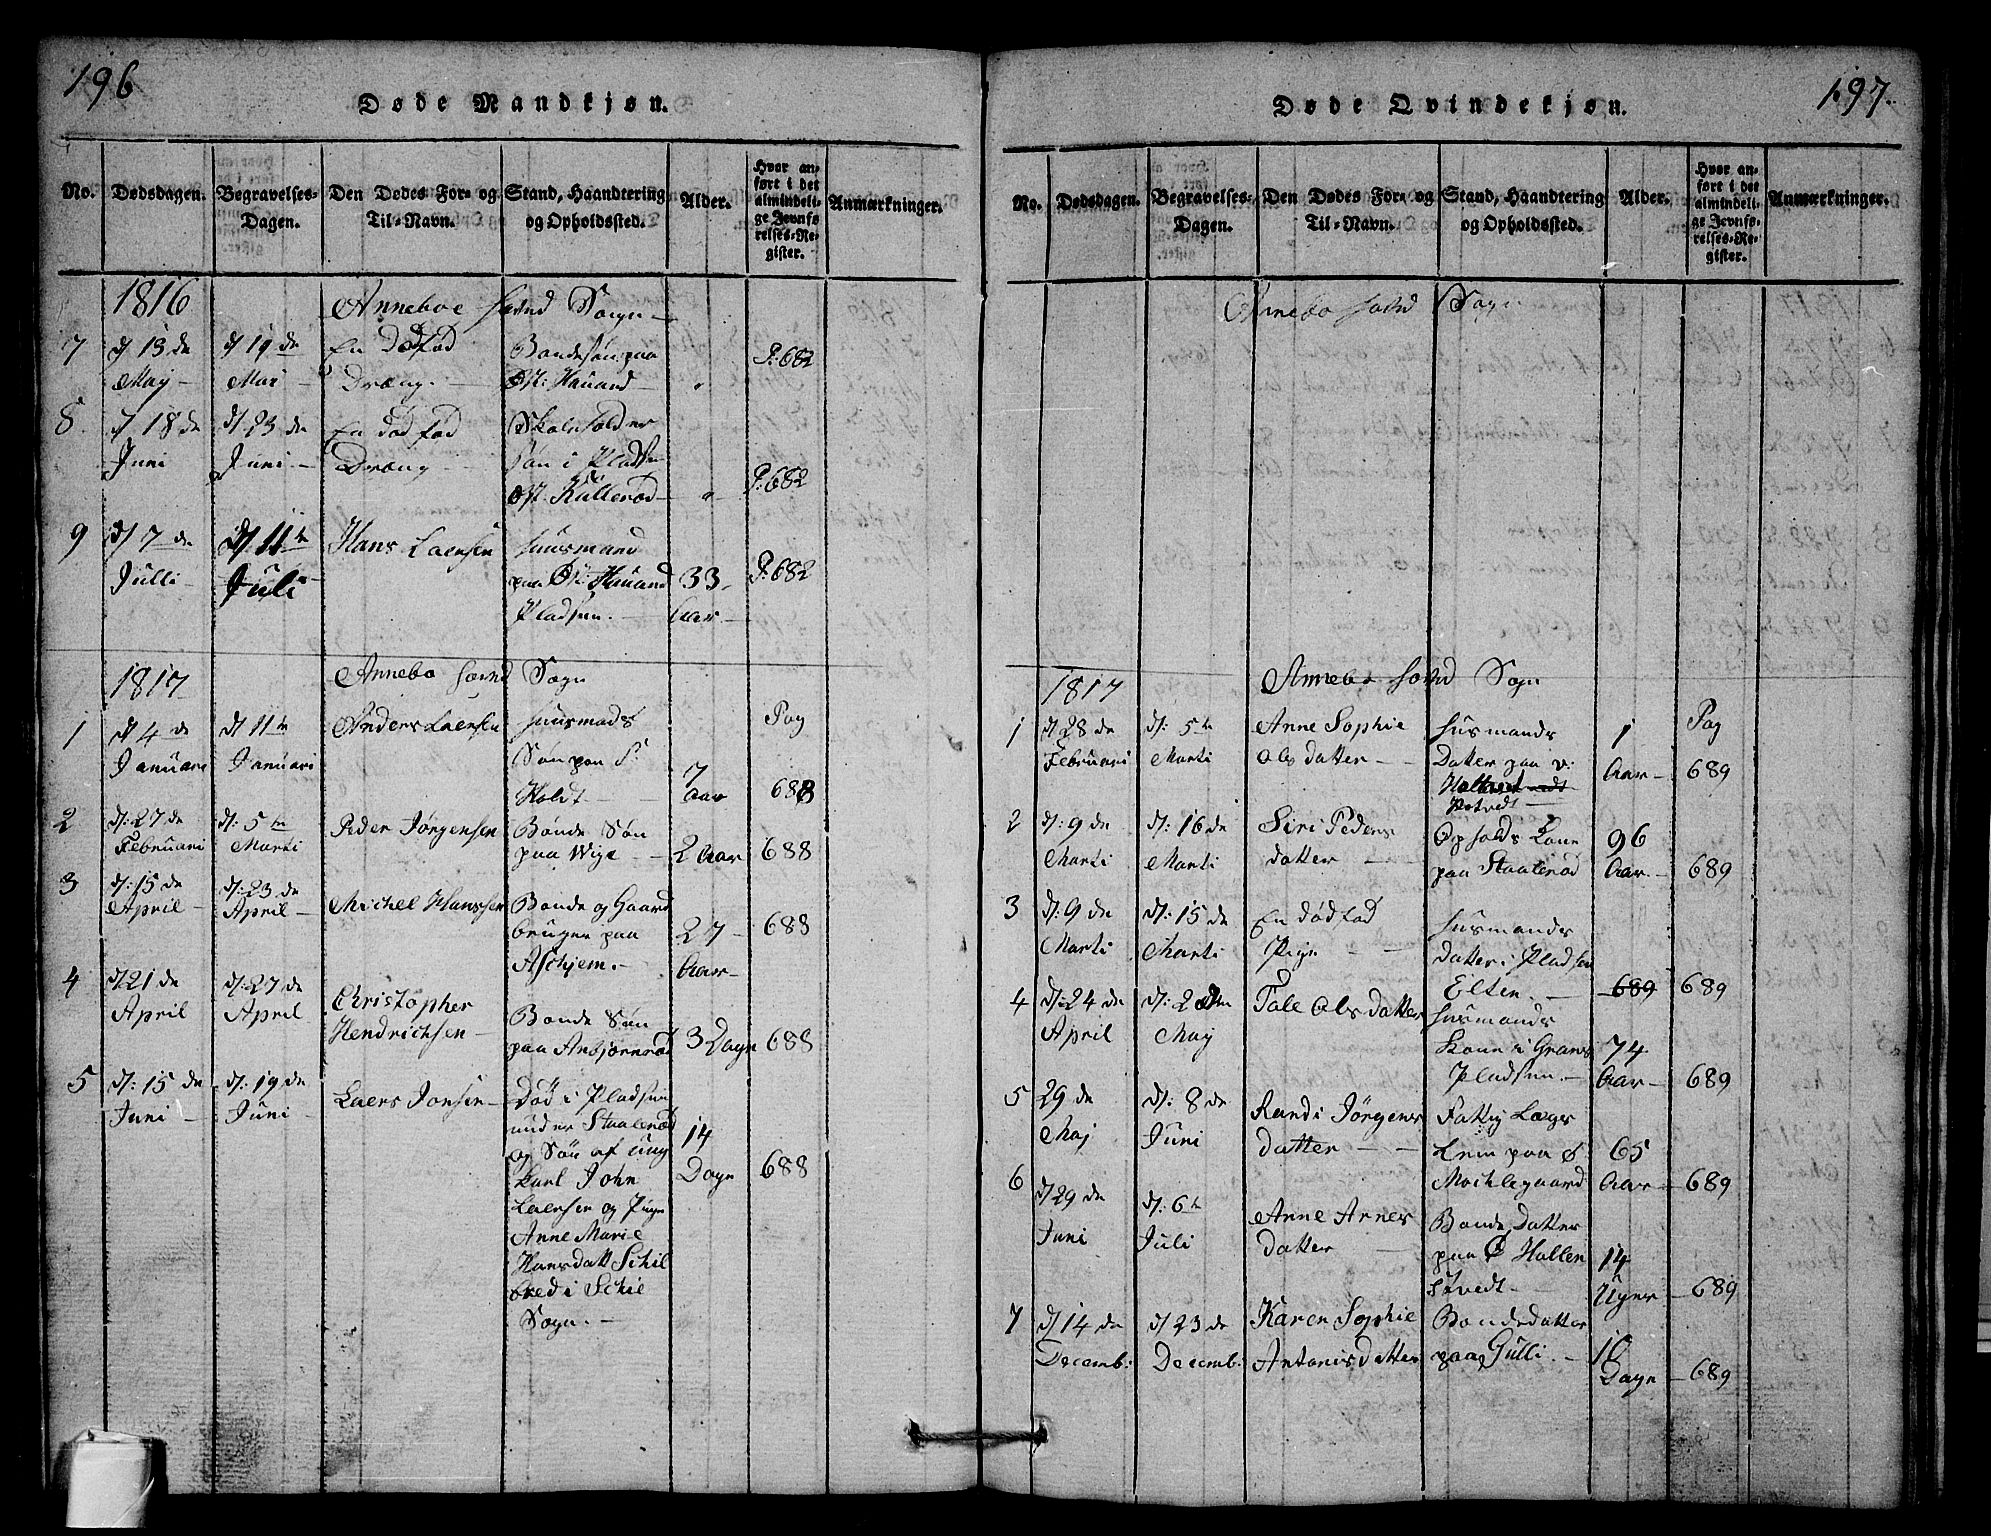 196
Døde Mandkjøn.
No.
Dødsdagen.
Begravelses-
Dagen.
Den Dødes For- og
Til-Navn.
Stand, Haandtering
og Opholdssted.
Alder.
Hvor an-
ført i det
almindeli-
ge Jevnfø-
relses-Re-
gister.
Anmærkninger.
1816
Anneboe Sogn
7
d/ 13 de
May
d/ 19 de
Mai
En dødfød
Dreng.
Bondesøn paa
Hauand
P: 682
8.
d/ 18 de
Juni
d/: 23 de
Juni
En død fød
Dreng
Skoleholder
Søn i Pladsen
Kullerød
P: 682
9
d/ 7 de
Julli
d/ 11 te
Juli
Hans Laersen
Huusmand
paa Hauand
Pladsen.
33
Aar
P: 682
1817
Annebo Sogn
1
d/ 4 de
Januari
d/ 11 te
Januari
Anders Laersen
Huusmads
Søn paa
Holdt
7
Aar
Pag
688
2
d/: 27 de
Februari
d/: 5 te
Marti
Peder Jörgensen
Bönde Søn
paa Wige
2 Aar
688
3
d/: 15 de
April
d/: 23 de
April
Michel Hanssen
Bonde og Gaard
bruger paa
Aschjem.
27
Aar
688
4
d/ 21 de
April
d/: 27 de
April
Christopher
Hendrichsen
Bonde Søn
paa Anbjørnrød
3 Dage
688
5
d/: 15 de
Juni
d/: 19 de
Juni
Laers Jonsen
Død i Pladsen
under Staalerød
og Søn af ung
karl John
Laersen og Pige
Anne Marie
Hansdatt Schil
bred i Schie
Sogn.
14
Dage
688
197.
Døde Qvindekjøn.
No.
Dødsdagen.
Begravelses-
Dagen.
Den Dødes For- og
Til-Navn.
Stand, Haandtering
og Opholdssted.
Alder.
Hvor an-
ført i det
almindeli-
ge Jevnfø-
relses-Re-
gister.
Anmærkninger.
Annebo Sogn
1817
Annebo Sogn
1
d/ 28 de
Februari
d/: 5 te
Marti
Anne Sophie
Ols datter
Husmands
Datter paa v:
1
Aar
Pag
689
2
d/: 9 de
Marti
d/: 16 de
Marti
Siri Peders
datter
Opholds Kone
paa Staalerød
96
Aar
689
3
d/: 9 de
Marti
d/: 15 de
Marti
En dødfød
Pige
Husmands
datter i Pladsen
Elten.
689
689
4
d/: 24 de
April
May
Tale Ols datter
Husmands
Kone i Grans
Pladsen.
74
Aar
689
5
29 de
Maj
d/: 8 de
Juni
Randi Jörgens
datter
Fattig Lægs
Lem paa Ø
Mochlegaard
65
Aar
689
6
d/ 29 de
Juni
d/: 6 te
Juli
Anne Arnes
datter
Bonde Datter
paa Ø Hallen
støvedt
14
Uger
689
7
d/ 14 de
Decemb:
d/ 23 de
Decemb:
Karen Sophie
Antonis datter
Bondedatter
paa Gulli.
10
Dage
689